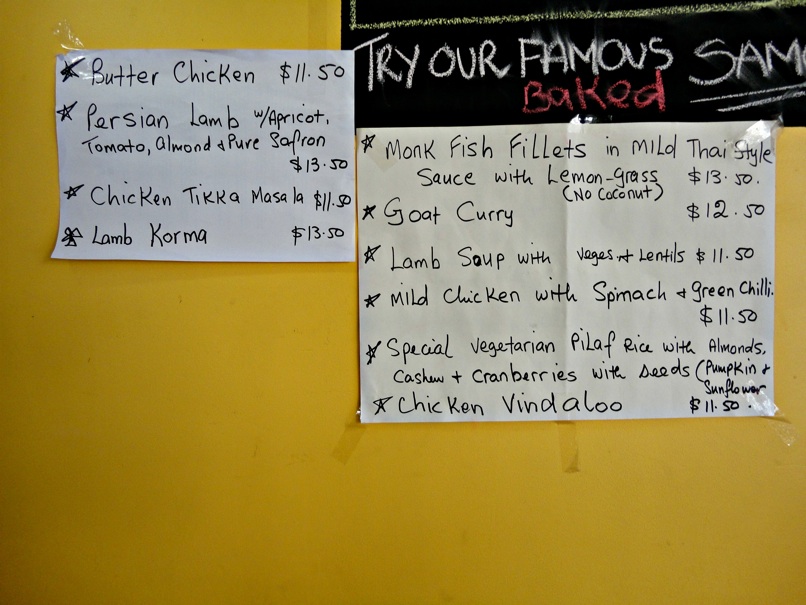 TRY OUR FAMOUS SAMO
Baked
★ Butter Chicken $11.50
★ Persian Lamb w/Apricot,
Tomato, Almond + Pure Saffron
$13.50
★ Chicken Tikka Masala $11.50
★ Lamb Korma $13.50
★ Monk Fish Fillets in Mild Thai Style
Sauce with Lemon-grass $13.50.
(No Coconut)
★ Goat Curry $12.50
★ Lamb Soup with Veges + Lentils $11.50
★ Mild Chicken with Spinach + green Chilli.
$11.50
★ Special Vegetarian Pilaf Rice with Almonds,
Cashew + Cranberries with seeds (Pumpkin +
Sunflower
★ Chicken Vindaloo $11.50.